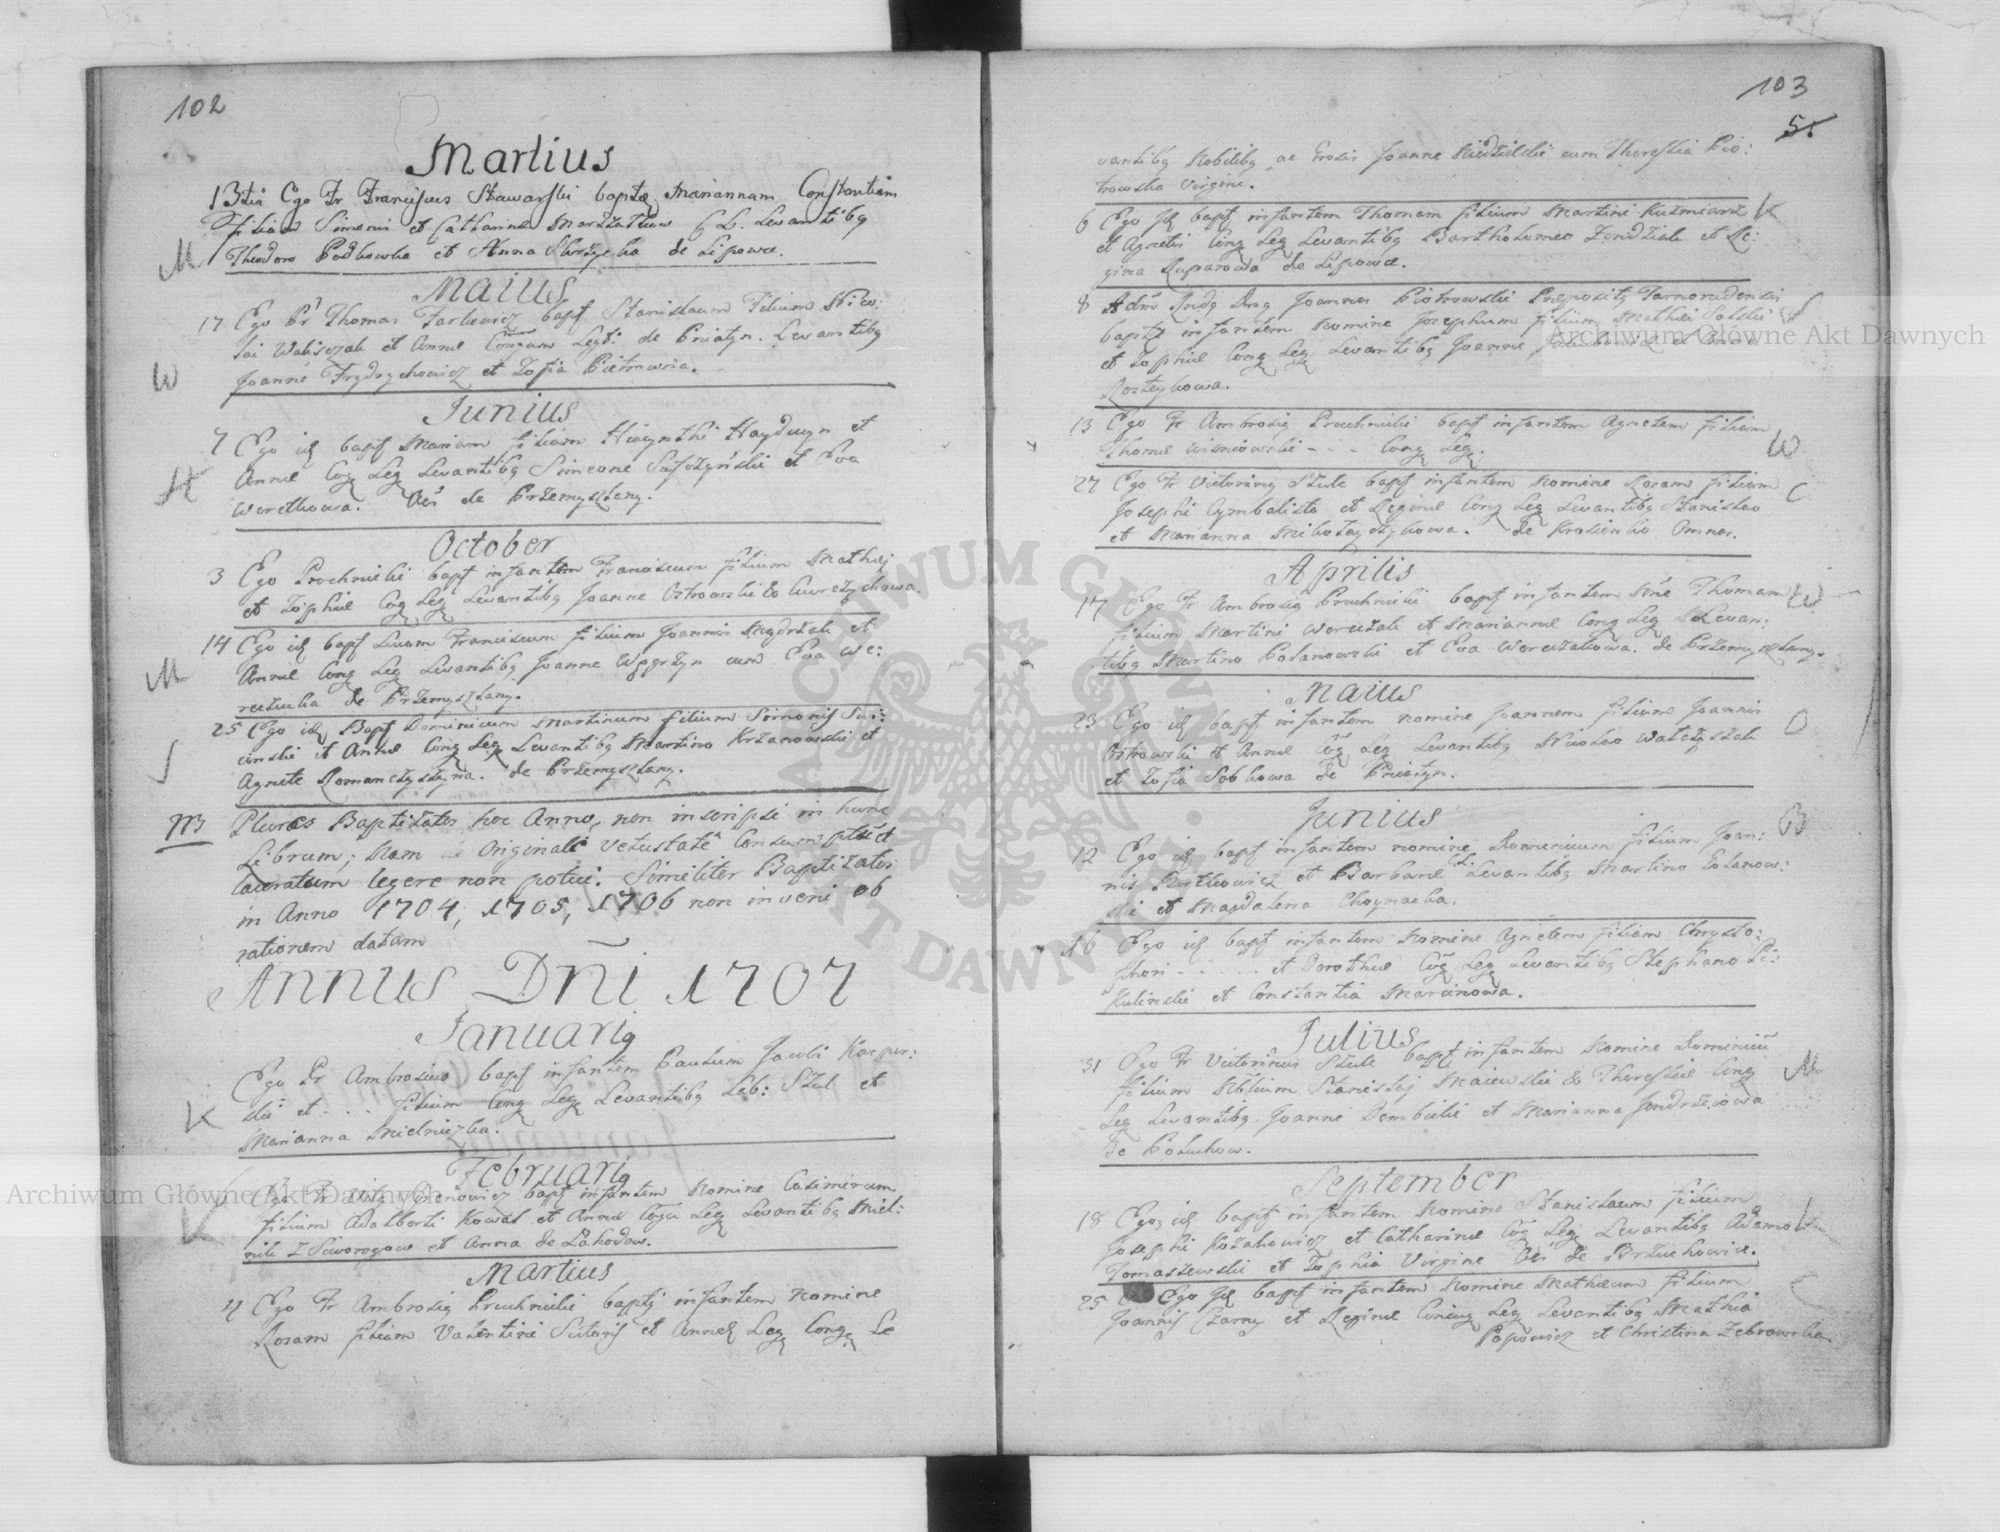 102
Martius
13tia Ego Fr Franciscus Stawarski baptę Mariannam Constantiam
Filiam Simonis et Catharinæ C L. Levantibq
Theodoro et Anna de Lipowce.
M
Maius
17 Ego Pr Thomas bapt Stanislaum Filium Nico:
lai Waliszak et Annæ Coniugum Legt: de Pniatyn. Levantibq
Joanne Frydrychowicz et Zofia
W
Junius
7 Ego id bapt Mariam filiam Hÿacynthi Hayduczyn et
Annæ Cog Leg Levantibq Simeone et Eva
Woretkowa. de Przemyszlany.
H
October
3 Ego Prochnicki bapt infantem Franciscum filium Mathæj
et Zophiæ Cog Leg Levantibq Joanne Ostrowski &
14 Ego id bapt Lucam Franciscum filium Joannis Mędrzak et
Annæ Cong Leg Levantibq Joanne Węgrzyn cum Eva We:
reczucha de Przemyszlany.
M
25 Ego id Bapt Dominicum Martinum filium Simonis
et Annæ Cong Leg Levantibq Martino Krzanowski et
Agnete Romanczyszyna. de Przemyszlany.
S
NB Plures Baptizatos hoc Anno, non inscripsi in hunc
Librum; Nam Originale Vetustate Consumptu et
laceratum legere non potui. Similiter Baptizatos
in Anno 1704, 1705, 1706 non inveni ob
rationem datam
Annus Dñi 1707
Januariq
Ego Pr Ambrosius bapt infantem Paulum Jacobi Kasper:
ski et . . . filium Cong Leg Levantibq Seb: Szul et
Marianna Mielniczka.
K
Februariq
Ego Fr bapt infantem Nomine Casimirum
filium Adalberti Kowal et Annæ Cogu Leg Levantibq
et Anna de Lahodow.
K
Martius
4 Ego Fr Ambrosiq Pruchnicki baptj infantem nomine
Rosam filiam Valentini Sutoris et Annæ Leg Cong Le
103
51
vantibq Nobilibq ac Grosis Joanne Niedzielski cum Theressia Pio:
trowska Virgine.
6 Ego id bapt infantem Thomam filium Martini Kuzmiarz
et Agnetis Cong Leg Levantibq Bartholomeo Dzendziak et Re:
gina de Lipowce.
K
8 Adm Rndq Dnq Joannes Piotrowski Præpositq Tarnorudensis
baptz infantem Nomine Josephum filium Mathæi
et Zophiæ Cong Leg Levantibq Joanne
13 Ego Fr Ambrosiq Pruchnicki bapt infantem Agnetem filiam
Thomæ Wisniowski - - - Cong Leg.
W
27 Ego Fr Victorinq Szule bapt infantem Nomine Rosam filiam
Josephi Cymbalista et Reginæ Cong Leg Levantibq Stanislao
et Marianna Mikolayczykowa. de Krosienko Omnes.
C
Aprilis
17 Ego Fr Ambrosiq Pruchnicki bapt infantem Nñe Thomam
filium Martini Woreczak et Mariannæ Cong Leg Levan:
tibq Martino Polanowski et Eva Woreczakowa. de Przemyszlany.
W
Maius
23 Ego id bapt infantem nomine Joannem filium Joannis
Ostrowski et Annæ Cog Leg Levantibq Nicolao Walczyszak
et Zofia Sobkowa de Pniatyn.
O
Junius
12 Ego id bapt infantem nomine Dominicum filium Joan:
nis et Barbaræ C.L. Levantibq Martino Polanow:
ski et Magdalena Choynacka.
B
16 Ego id bapt infantem Nomine Agnetem filiam Chrysto:
phori - . . . . et Dorotheæ Cog Leg Levantibq Stephano Li:
kulinski et Constantia Marcinowa.
Julius
31 Ego Fr Victorinus Szule bapt infantem Nomine Dominicũ
filium Nobilium Stanislaj Maiewski & Theressiæ Cong
Leg Levantibq Joanne Dembicki et Marianna Jendrzejowa
de Poluchow.
M
September
18 Ego id bapt infantem Nomine Stanislaum filium
Josephi Kozakowicz et Catharinæ Cog Leg Levantibq Adamo
Tomaszewski et Zophia Virgine de Brzuchowice.
K
25 Ego id bapt infantem Nomine Mathæum filium
Joannis Czarny et Reginæ Coniug Leg Levantibq Mathia
Popowicz et Christina Zebrowska
C
Archiwum Główne Akt Dawnych
Archiwum Główne Akt Dawnych
ARCHIWUM GŁÓWNE AKT DAWNYCH